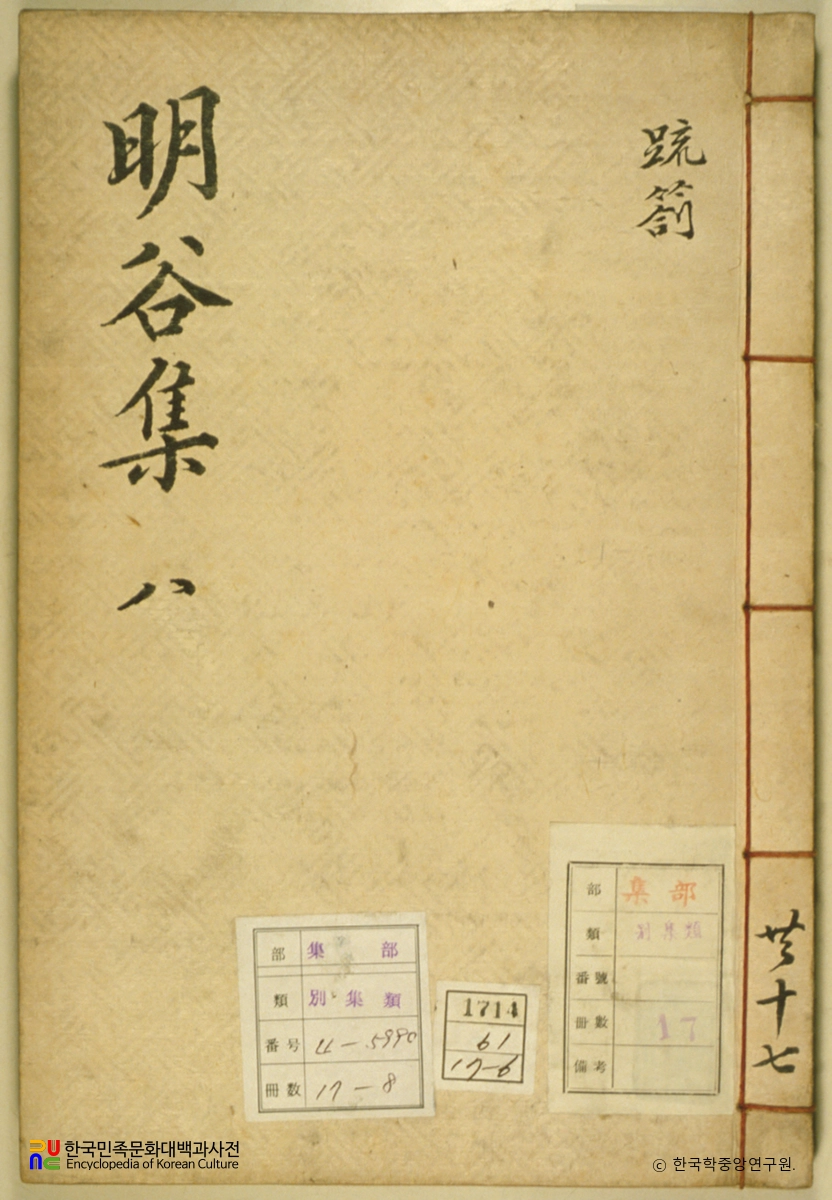 疏箚
明谷集 八
共十七
部 集部
類 別集類
番号 4-5990
冊数 17-8
1714
61
17-6
部 集部
類 別集類
番號
冊數 17
備考
한국민족문화대백과사전
Encyclopedia of Korean Culture
ⓒ 한국학중앙연구원.